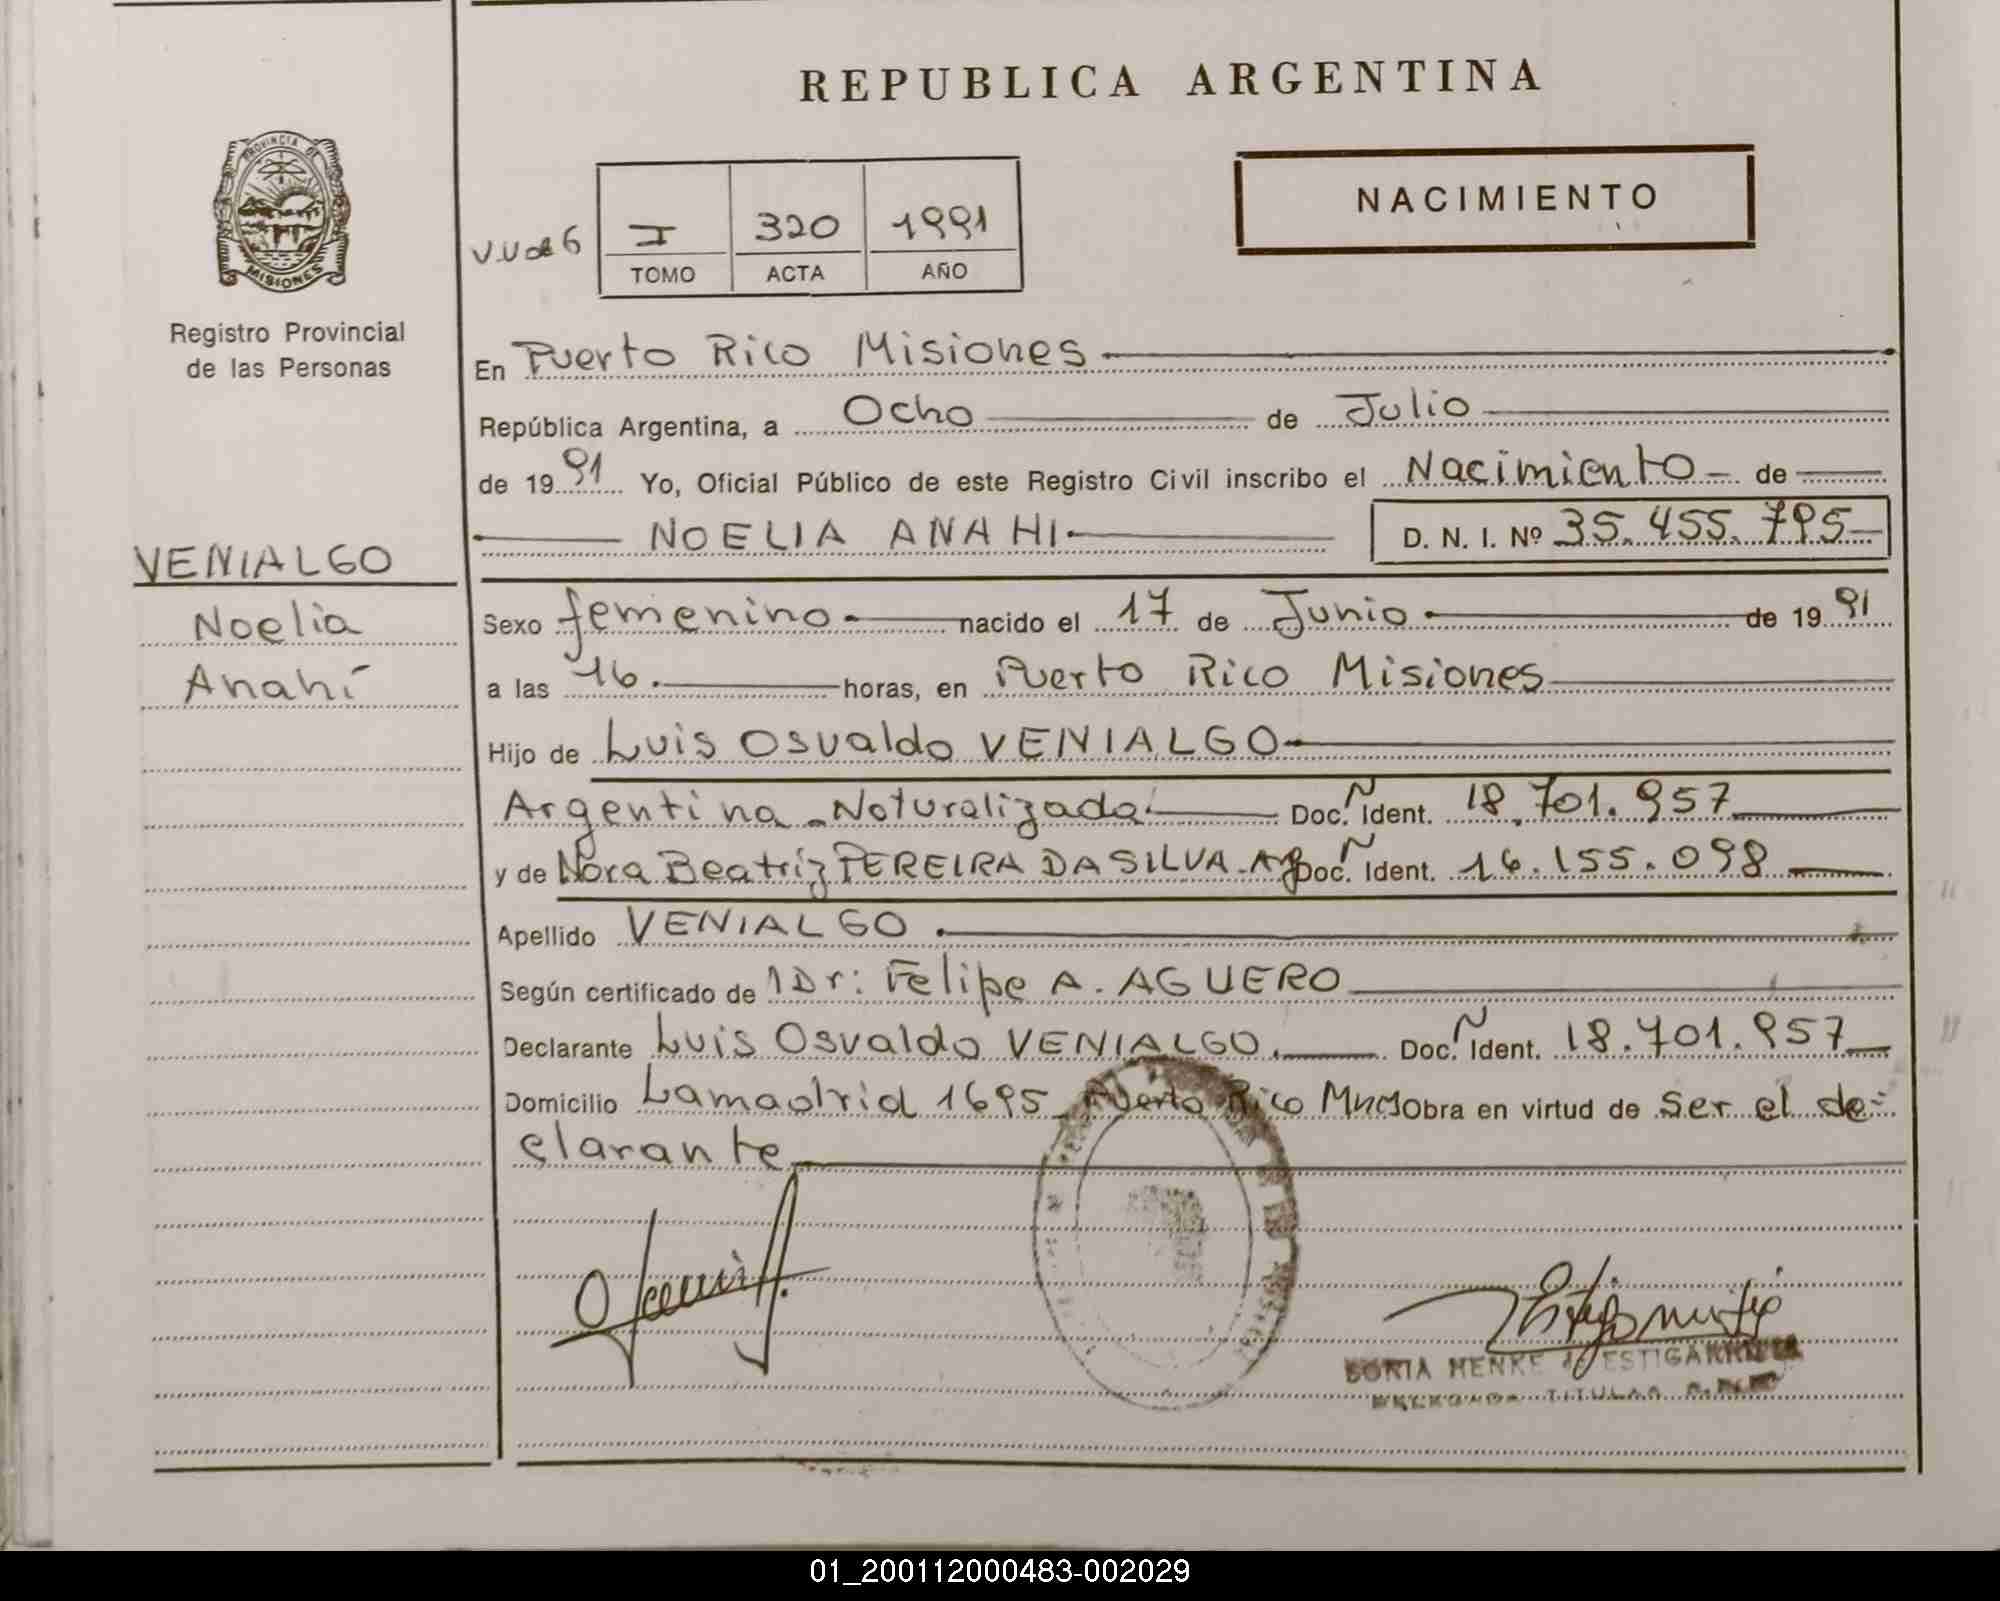 REPUBLICA ARGENTINA
PROVINCIA DE
MISIONES
Registro Provincial
de las Personas
NACIMIENTO
I 320 1991
TOMO ACTA AÑO
En Puerto Rico Misiones
República Argentina, a Ocho de Julio
de 1991 Yo, Oficial Público de este Registro Civil inscribo el Nacimiento de
NOELIA ANAHI D. N. I. Nº 35.455.795
VENIALGO
Noelia
Anahí
Sexo femenino nacido el 17 de Junio de 1991
a las 16. horas, en Puerto Rico Misiones
Hijo de Luis Osvaldo VENIALGO
Argentina Naturalizada Doc. Ident. 18.701.957
y de Nora Beatriz PEREIRA DA SILVA Doc. Ident. 16.155.098
Apellido VENIALGO
Según certificado de Dr: Felipe A. AGUERO
Declarante Luis Osvaldo VENIALGO Doc. Ident. 18.701.957
Domicilio Lamadrid 1695 Puerto Rico Obra en virtud de ser el de-
clarante
MENKE ESTIGARRIBIA
TITULAR
01_200112000483-002029